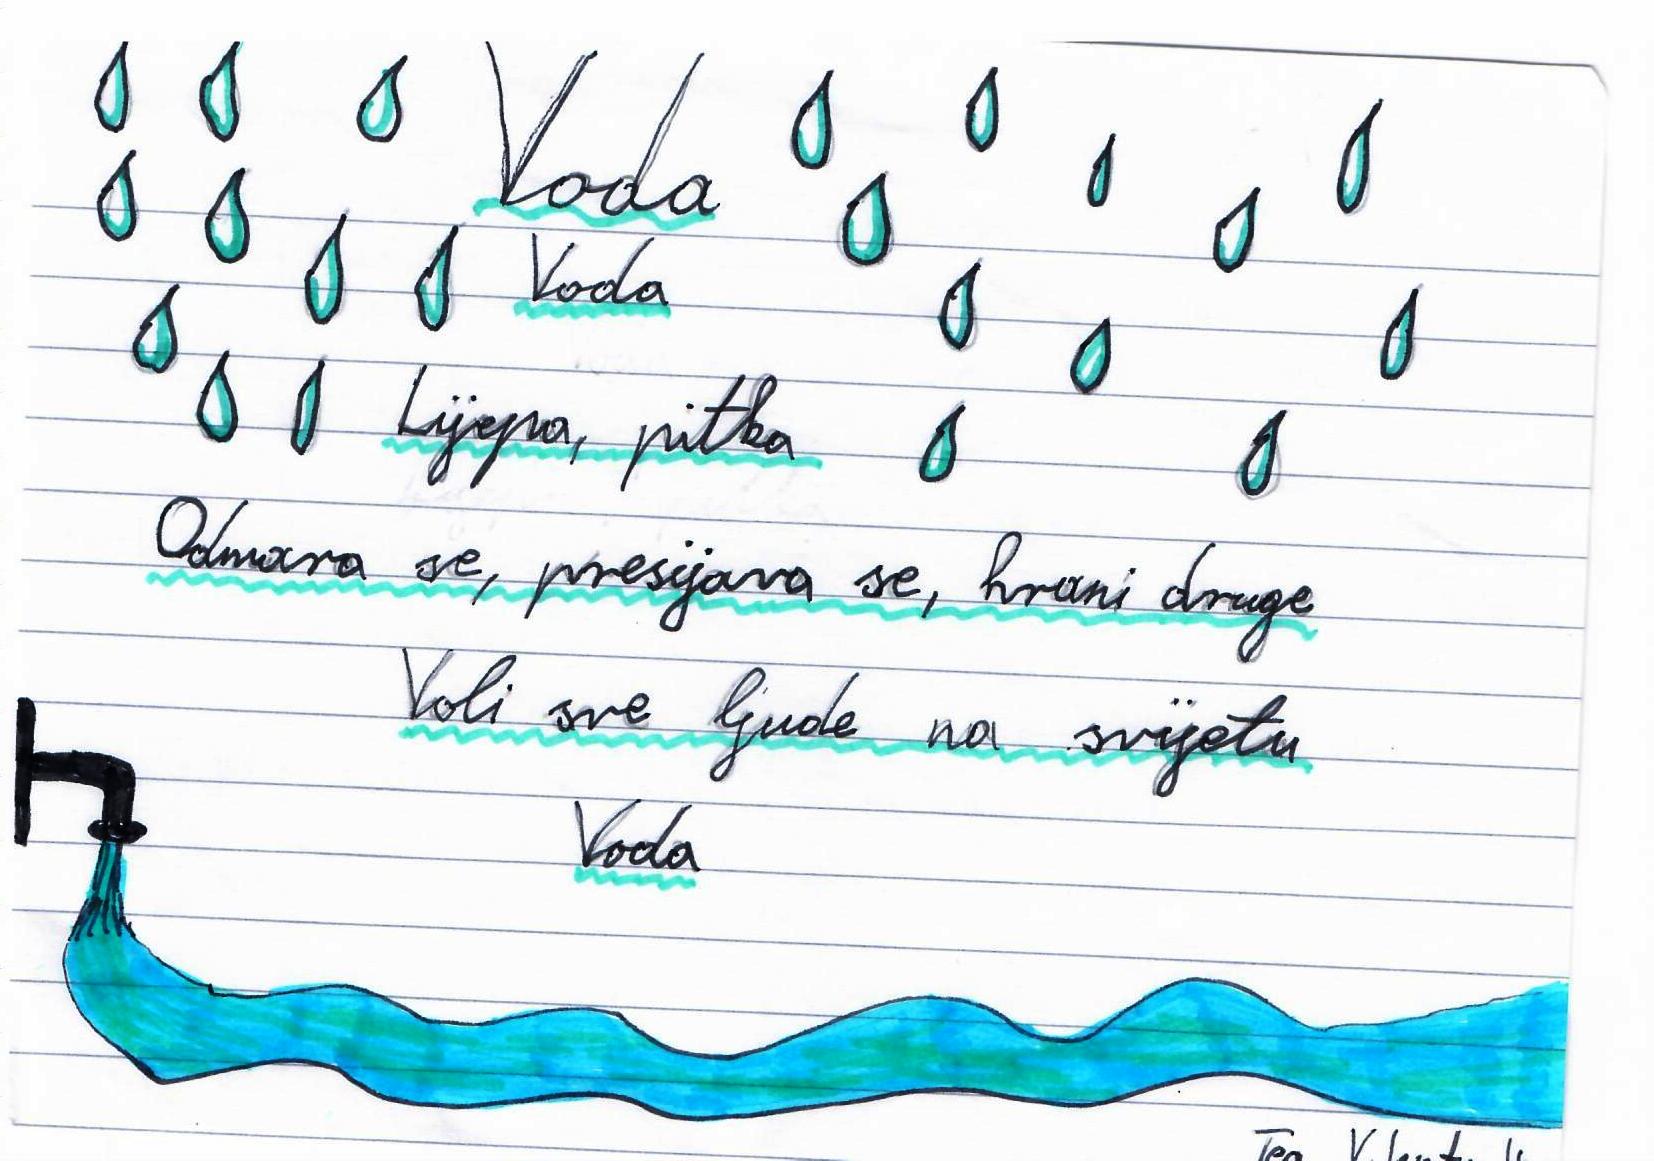 Voda
Voda
Lijepa, pitka
Odmara se, presijava se, hrani druge
Voli sve ljude na svijetu
Voda
Tea